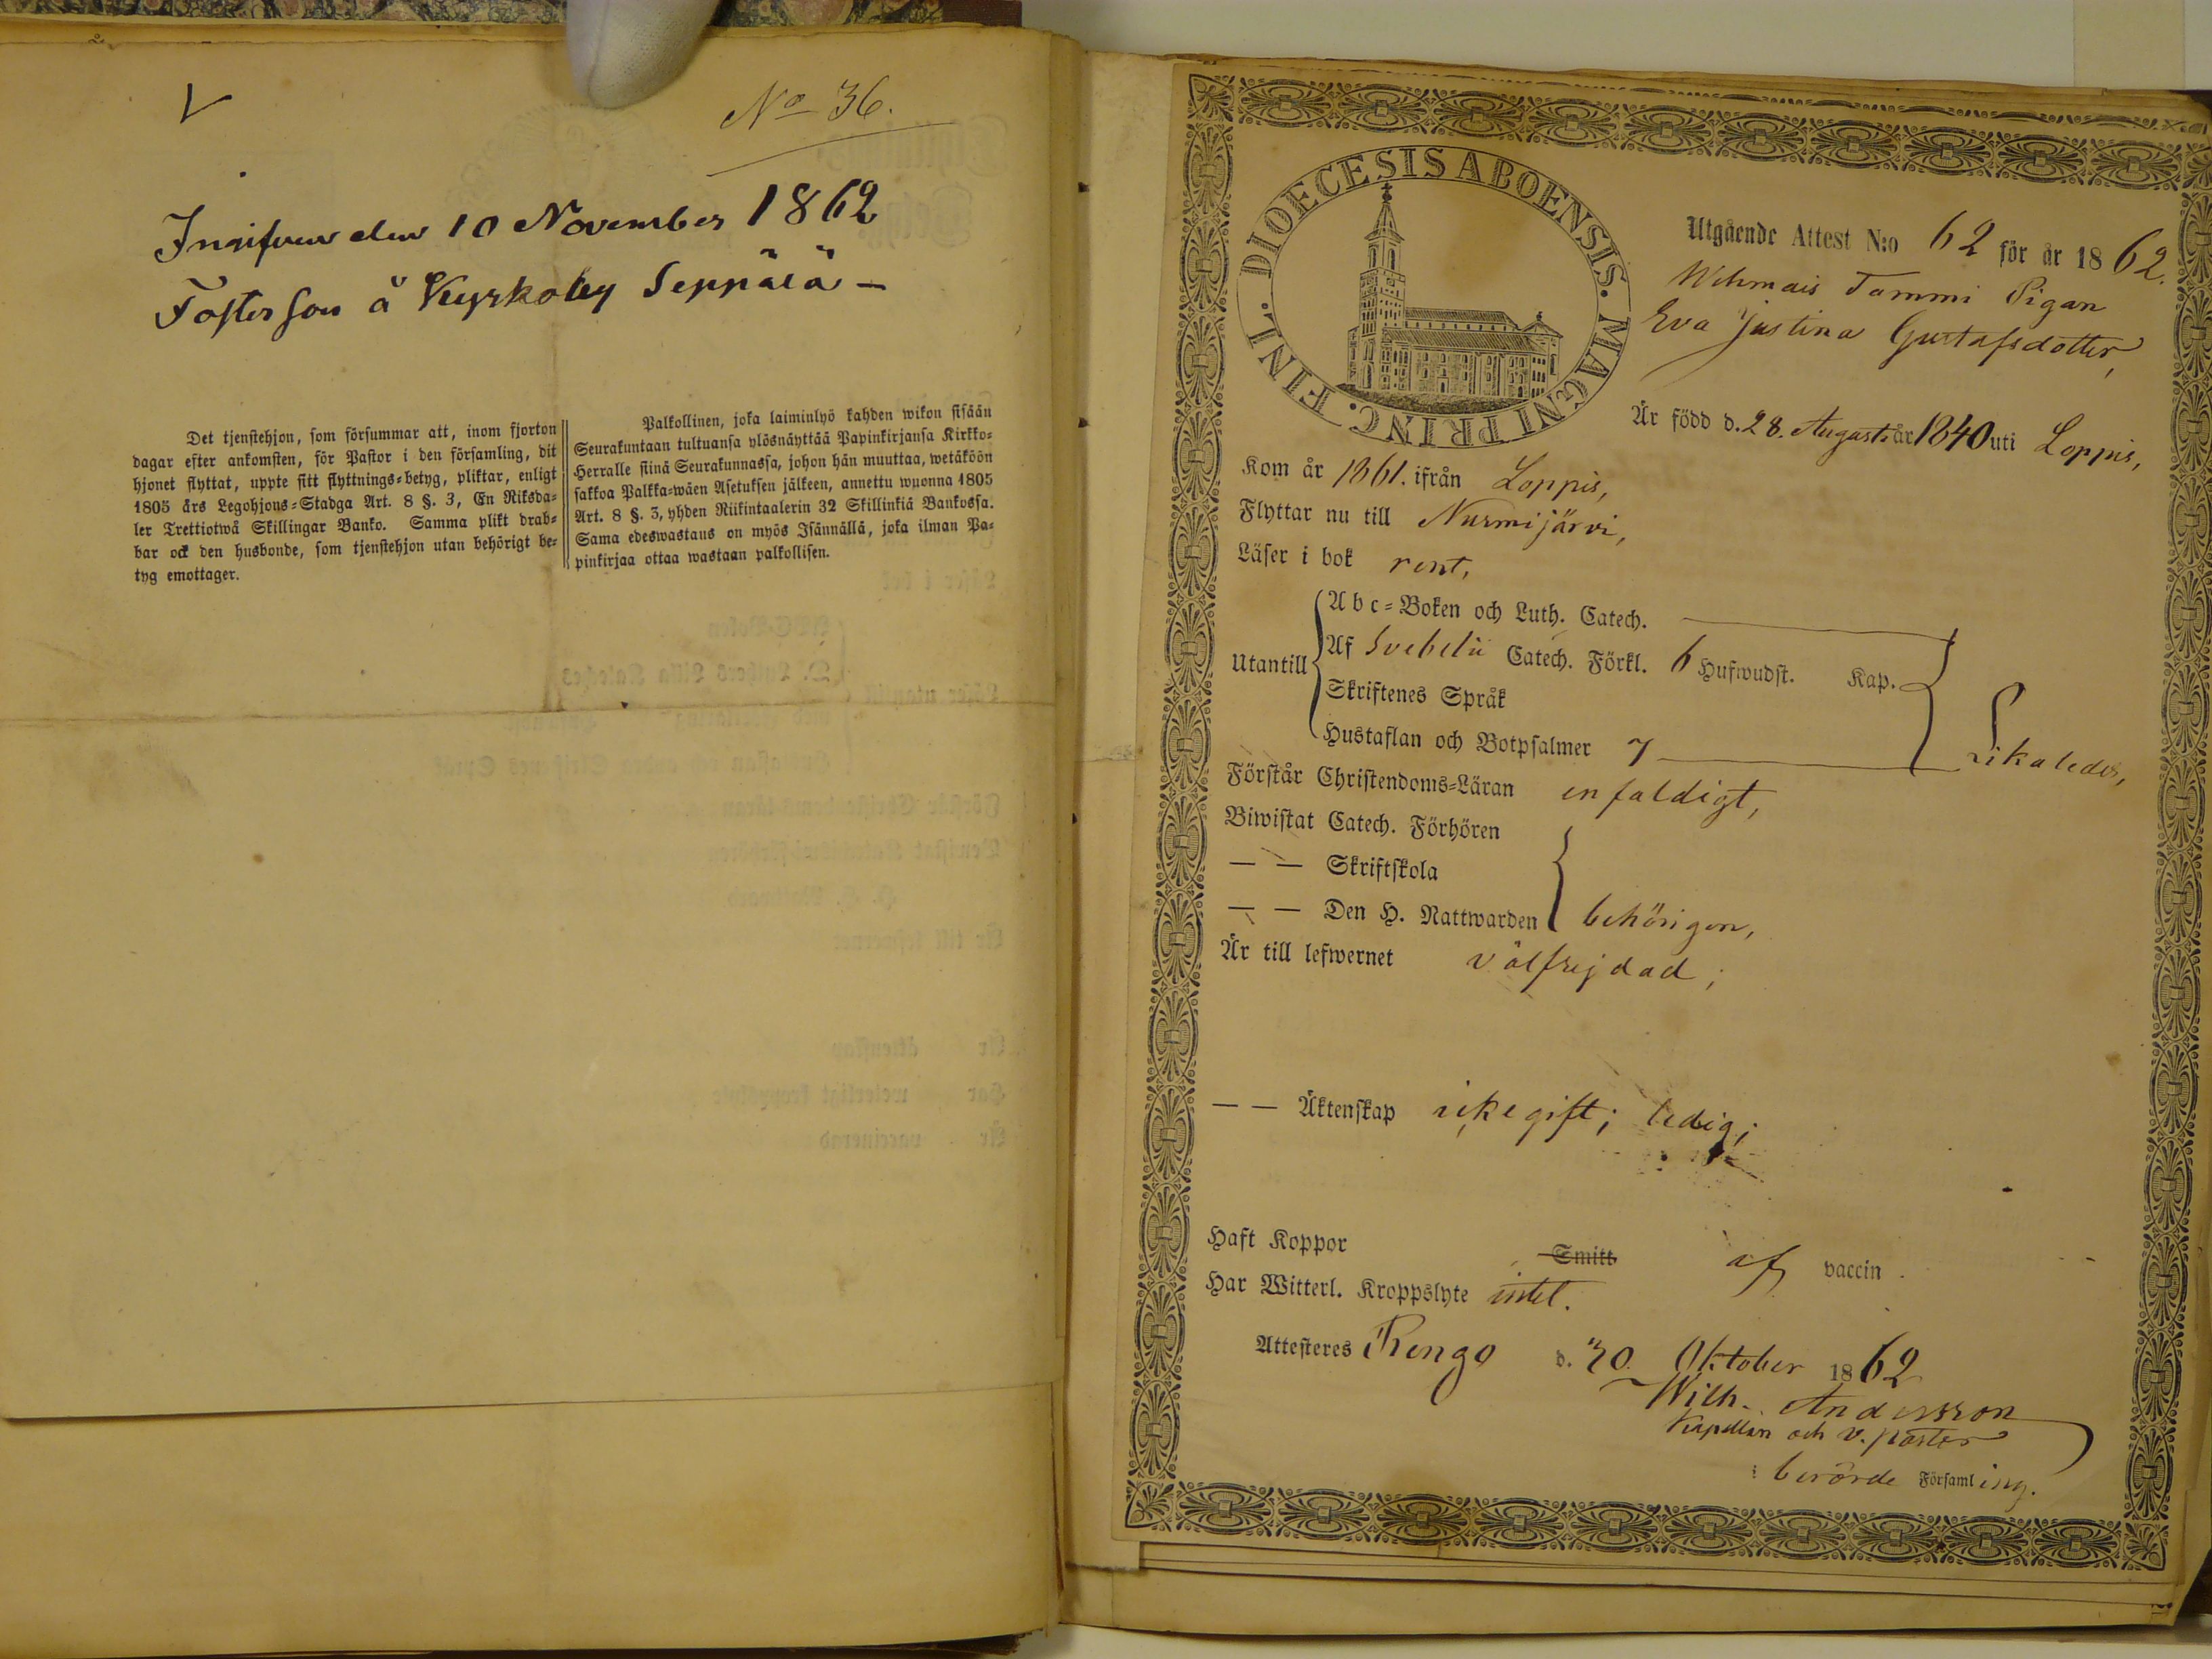 No 36.
Ingifven den 10 November 1862
Fosterson å Kyrkoby Seppälä –
Det tjenstehjon, som försummar att, inom fjorton
dagar efter ankomsten, för Pastor i den församling, dit
hjonet flyttat, uppte sitt flyttnings-betyg, pliktar, enligt
1805 års Legohjons-Stadga Art. 8 §. 3, En Riksda-
ler Trettiotwå Skillingar Banko. Samma plikt drab-
bar ock den husbonde, som tjenstehjon utan behörigt be-
tyg emottager.
Palkollinen, joka laiminlyö kahden wikon sisään
Seurakuntaan tultuansa ylösnäyttää Papinkirjansa Kirkko-
Herralle siinä Seurakunnassa, johon hän muuttaa, wetäköön
sakkoa Palkka-wäen Asetuksen jälkeen, annettu wuonna 1805
Art. 8 §. 3, yhden Riikintaalerin 32 Skillinkiä Bankossa.
Sama edeswastaus on myös Isännällä, joka ilman Pa-
pinkirjaa ottaa wastaan palkollisen.
DIOECESIS ABOENSIS. MAGNI PRINC. FINL.
Utgående Attest N:o 62 för år 1862.
Wehmais Tammi Pigan
Eva Justina Gustafsdotter,
Är född d. 28. Augusti år 1840 uti Loppis,
Kom år 1861. ifrån Loppis,
Flyttar nu till Nurmijärvi,
Läser i bok rent,
Utantill
Abc-Boken och Luth. Catech.
Af Svebelii Catech. Förkl. 6 Hufwudst. Kap.
Skriftenes Språk
Hustaflan och Botpsalmer 7
likaledes,
Förstår Christendoms-Läran enfaldigt,
Biwistat Catech. Förhören
— — Skriftskola
— — Den H. Nattwarden behörigen,
Är till lefwernet välfrejdad;
— — Äktenskap icke gift; ledig;
Haft Koppor Smitt af vaccin
Har Witterl. Kroppslyte intet.
Attesteres Rengo d. 30. Oktober 1862
Wilh. Andersson
Kapellan och v. pastor
i berörde Församling.